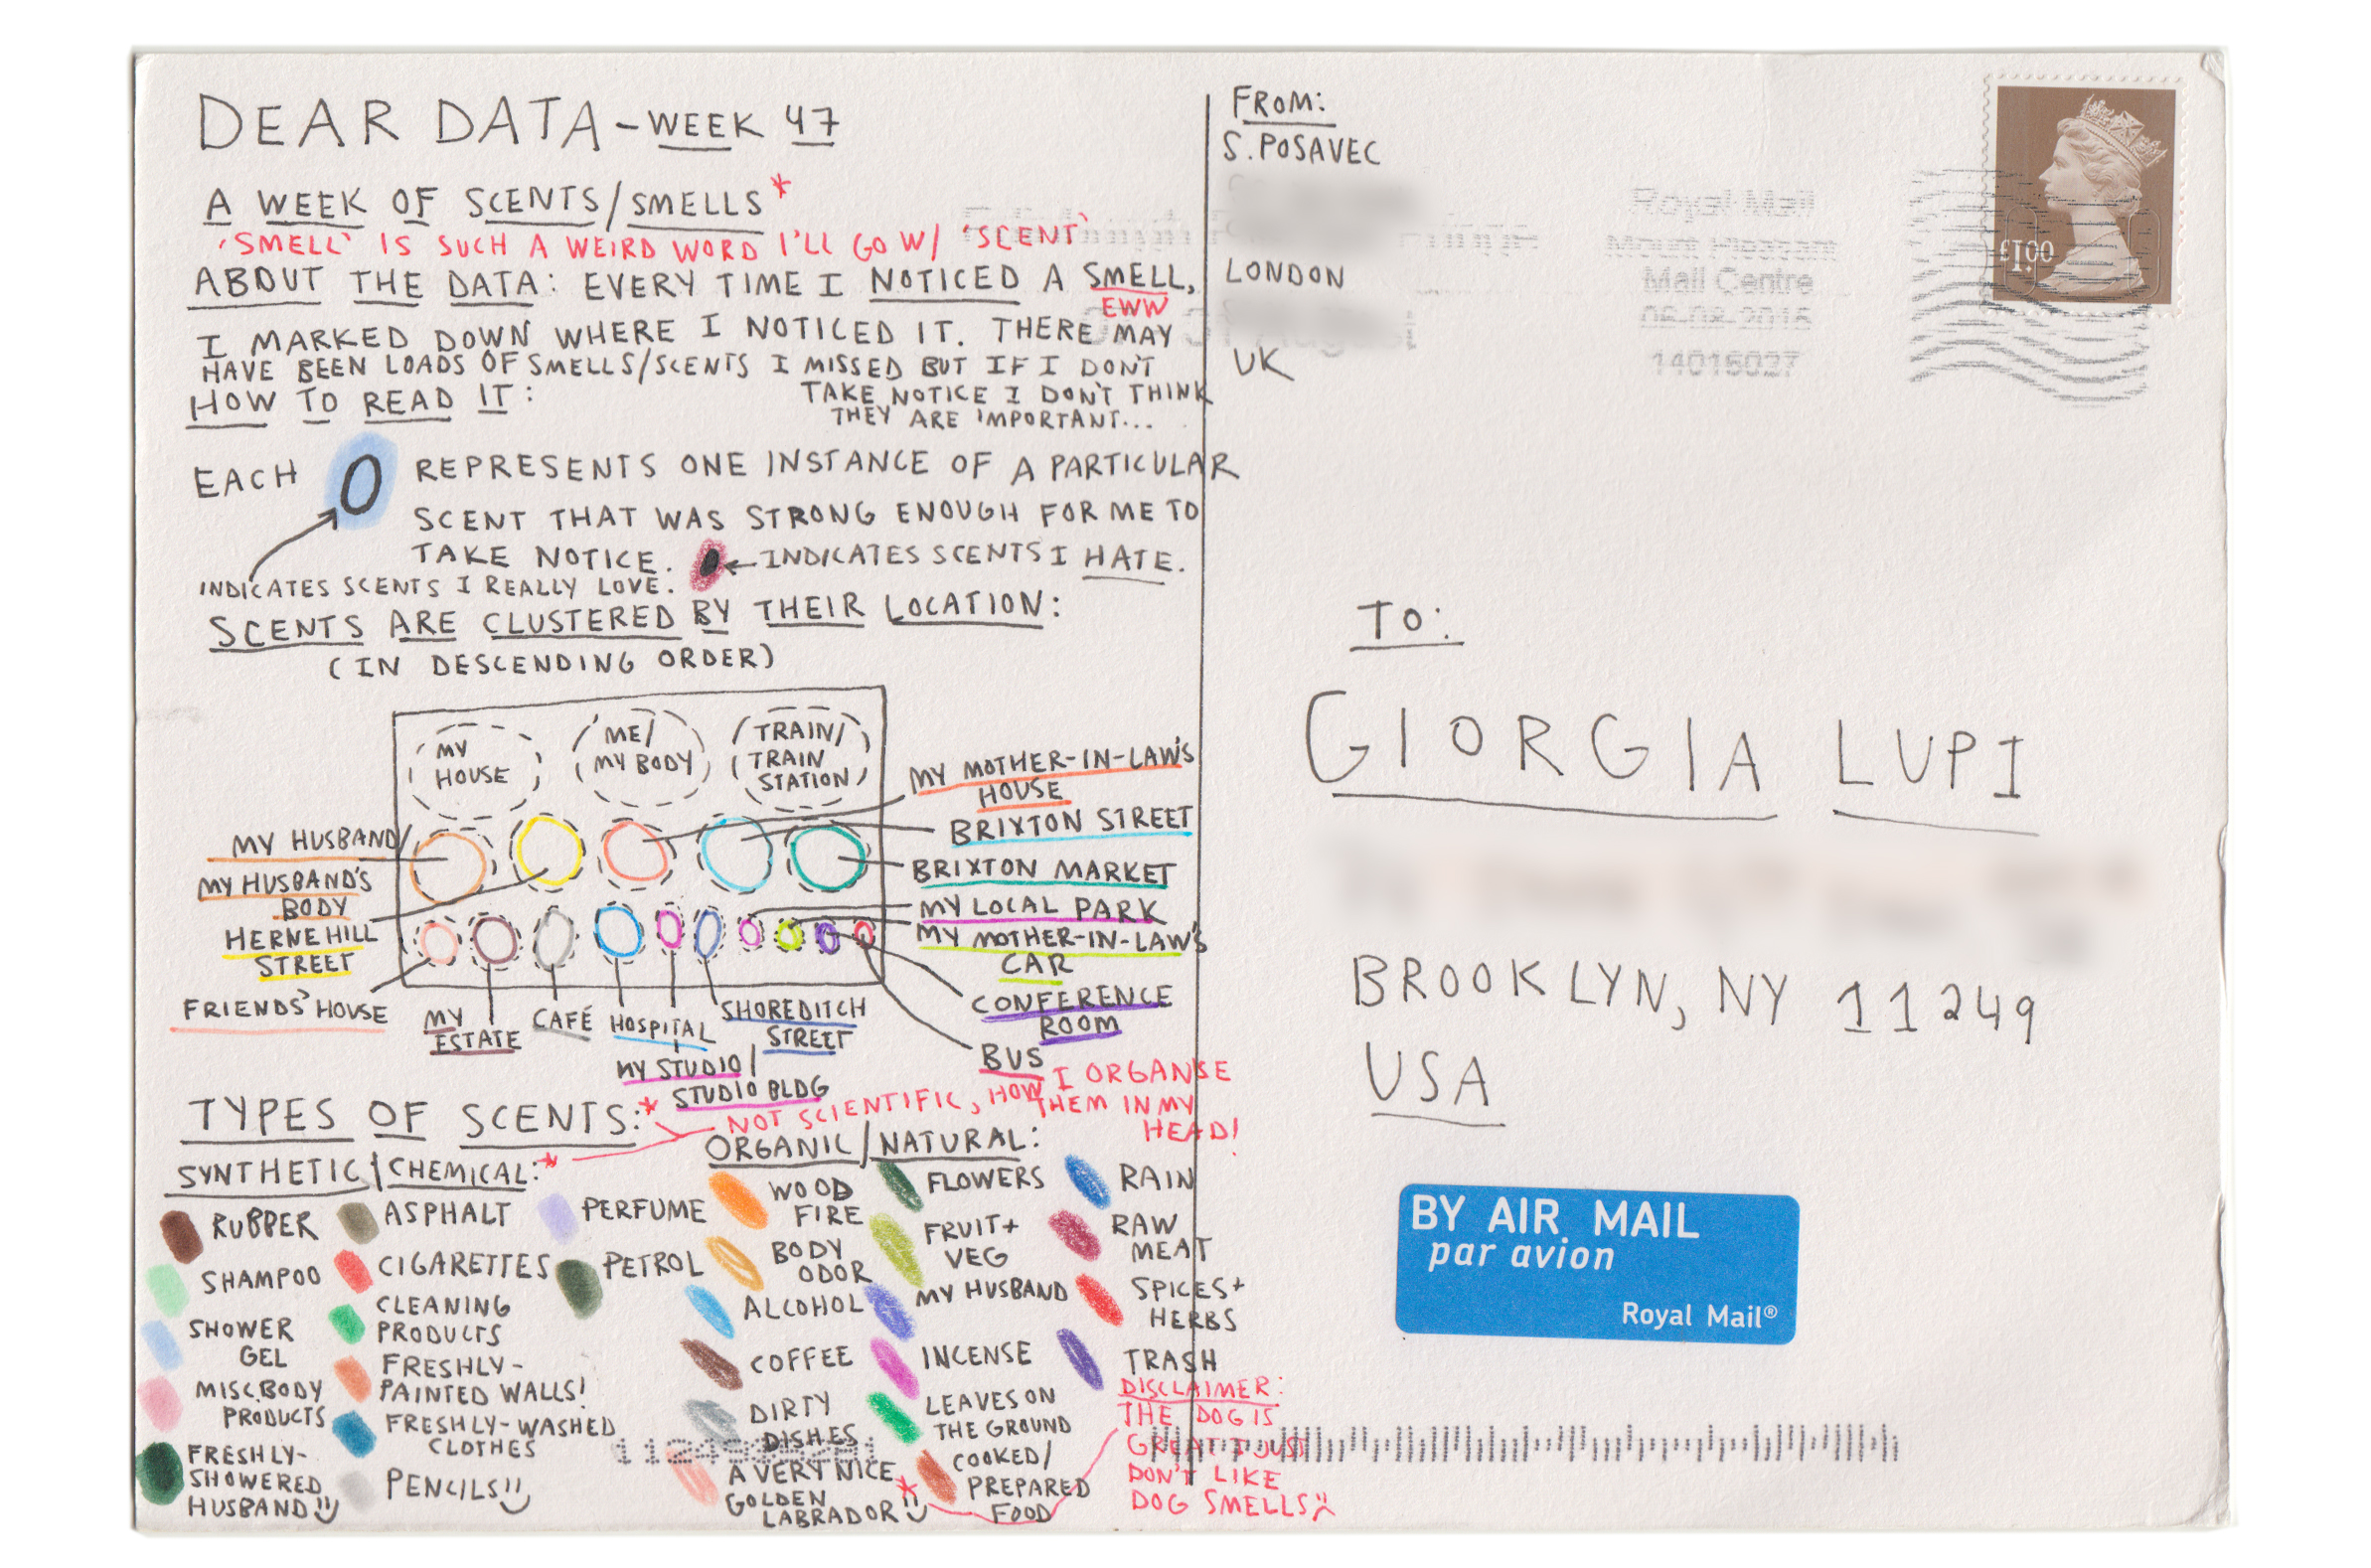 DEAR DATA - WEEK 47
A WEEK OF SCENTS/SMELLS*
'SMELL' IS SUCH A WEIRD WORD I'LL GO W/ 'SCENT'
ABOUT THE DATA: EVERY TIME I NOTICED A SMELL,
EWW
I MARKED DOWN WHERE I NOTICED IT. THERE MAY
HAVE BEEN LOADS OF SMELLS/SCENTS I MISSED BUT IF I DON'T
TAKE NOTICE I DON'T THINK
THEY ARE IMPORTANT...
HOW TO READ IT:
EACH REPRESENTS ONE INSTANCE OF A PARTICULAR
SCENT THAT WAS STRONG ENOUGH FOR ME TO
TAKE NOTICE. INDICATES SCENTS I HATE.
INDICATES SCENTS I REALLY LOVE.
SCENTS ARE CLUSTERED BY THEIR LOCATION:
(IN DESCENDING ORDER)
MY
HOUSE
ME/
MY BODY
TRAIN/
TRAIN
STATION
MY HUSBAND/
MY HUSBAND'S
BODY
HERNE HILL
STREET
FRIENDS' HOUSE
MY
ESTATE
CAFÉ
HOSPITAL
MY STUDIO/
STUDIO BLDG
SHOREDITCH
STREET
MY MOTHER-IN-LAW'S
HOUSE
BRIXTON STREET
BRIXTON MARKET
MY LOCAL PARK
MY MOTHER-IN-LAW'S
CAR
CONFERENCE
ROOM
BUS
TYPES OF SCENTS:*
NOT SCIENTIFIC, HOW I ORGANSE
THEM IN MY
HEAD!
SYNTHETIC/CHEMICAL:*
RUBBER
SHAMPOO
SHOWER
GEL
MISC. BODY
PRODUCTS
FRESHLY-
SHOWERED
HUSBAND
ASPHALT
CIGARETTES
CLEANING
PRODUCTS
FRESHLY-
PAINTED WALLS!
FRESHLY-WASHED
CLOTHES
PENCILS
PERFUME
PETROL
ORGANIC/NATURAL:
WOOD
FIRE
BODY
ODOR
ALCOHOL
COFFEE
DIRTY
DISHES
A VERY NICE
GOLDEN
LABRADOR*
FLOWERS
FRUIT+
VEG
MY HUSBAND
INCENSE
LEAVES ON
THE GROUND
COOKED/
PREPARED
FOOD
RAIN
RAW
MEAT
SPICES+
HERBS
TRASH
DISCLAIMER:
THE DOG IS
GREAT I JUST
DON'T LIKE
DOG SMELLS
FROM:
S. POSAVEC
LONDON
UK
£1.00
Royal Mail
Mount Pleasant
Mail Centre
14016027
TO:
GIORGIA LUPI
BROOKLYN, NY 11249
USA
BY AIR MAIL
par avion
Royal Mail®